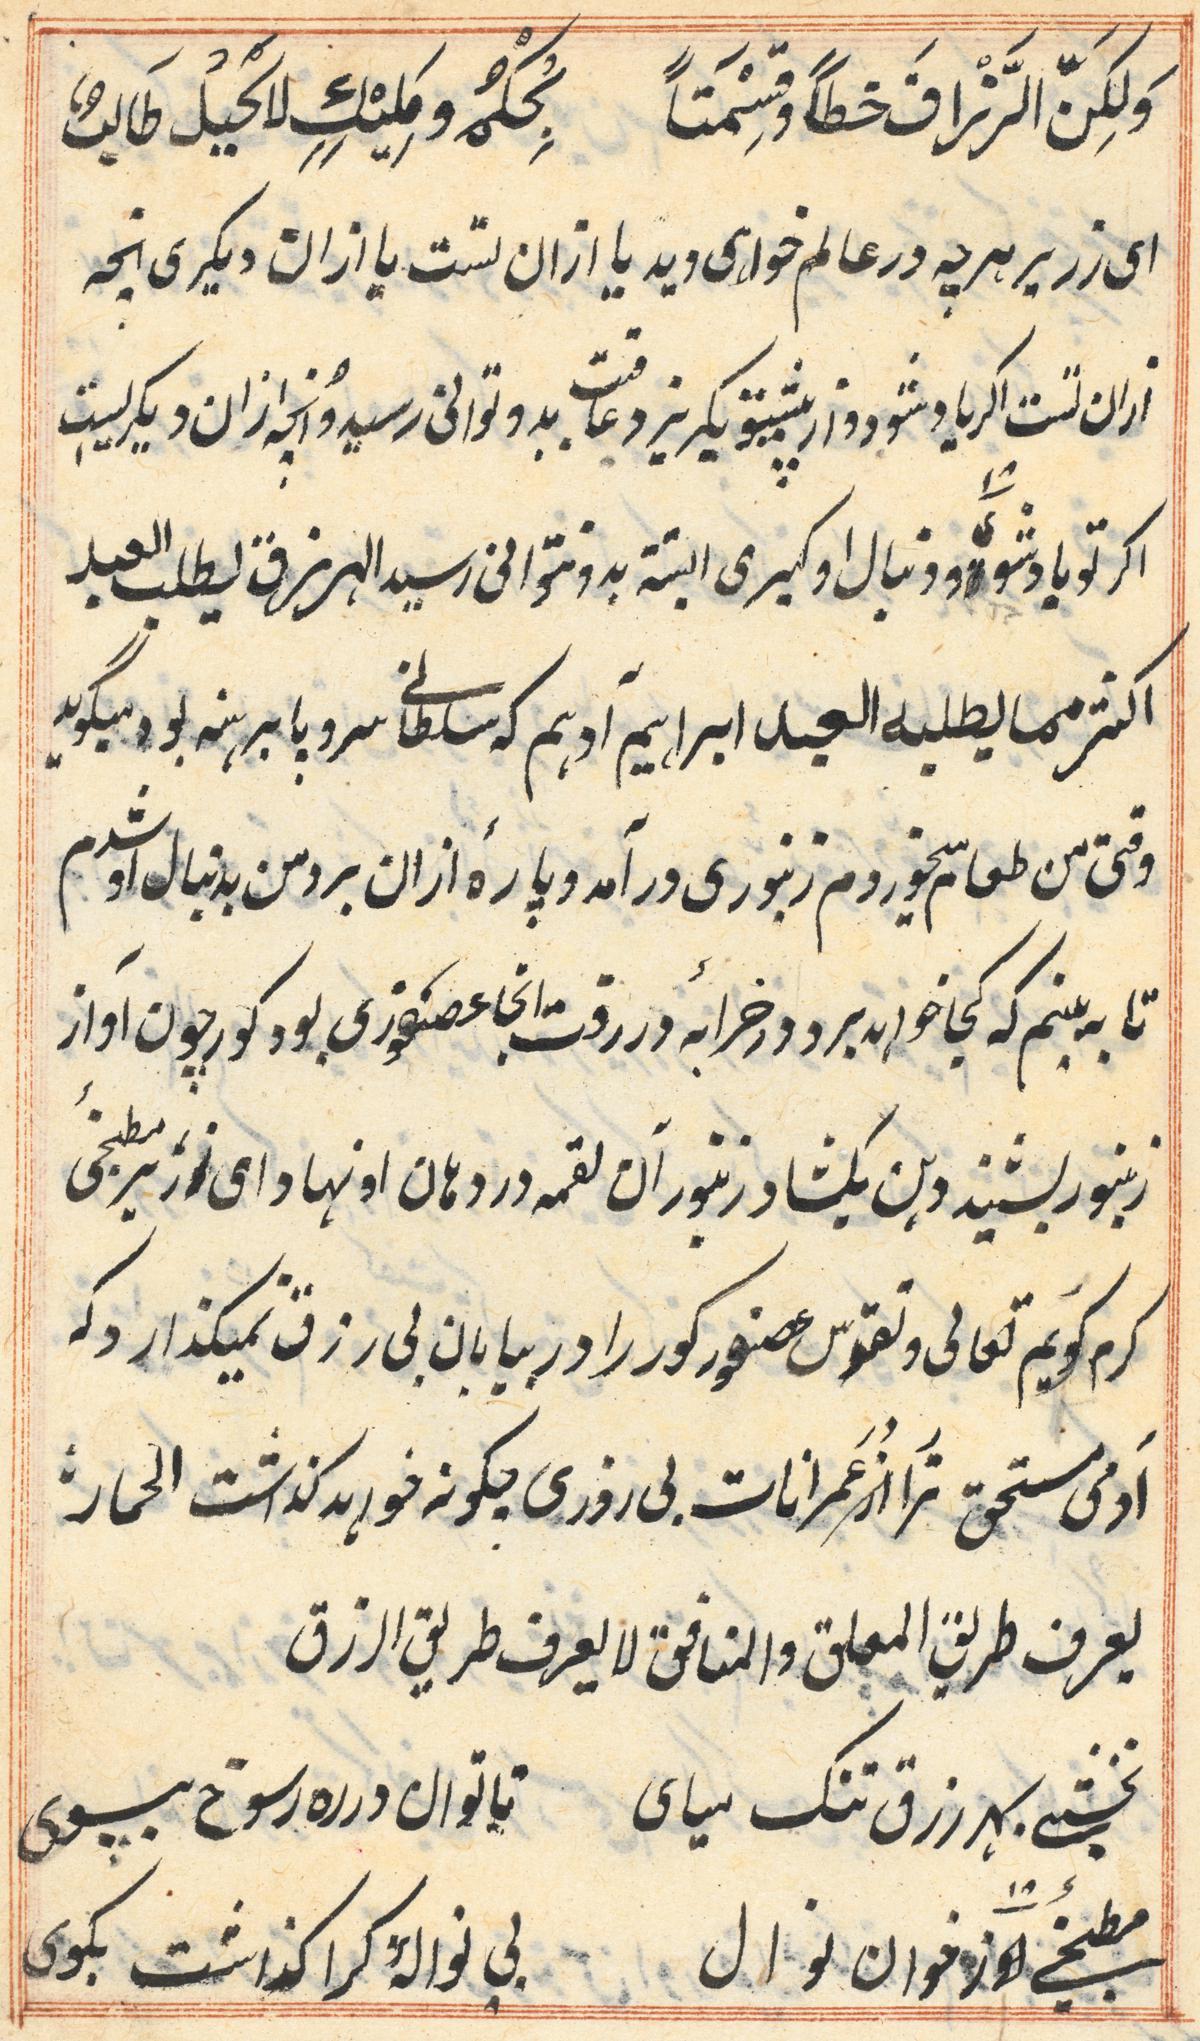 وَلٰكِنَّ الرِّزْاقَ خطاً وَقِسْمَتاً بِحُكْمِ وَمَلِيْكٍ لا كُحِيْلُ طَالِبُ
ای زر یر هر چه در عالم خواهی دید یا از ان تست یا از ان دیکری انچه
از ان تست اکر باد شود و از پیشتو بکریزد عاقبت بدو توانی رسید و انچه از ان دیکریست
اکر تو باد شوی و دنبال او کیری البته بدو نتوانی رسید الرزق لیطلب العبد
اکثر مما یطلبه العبد ابراهیم آدهم که سلطانی سر و پا برهنه بود میکوید
وقتی من طعام میخوردم زنبوری در آمد و پارهٔ از ان برد من بدنبال او شدم
تا به بینم که کجا خواهد برد در خرابهٔ در رفت انجا عصفوری بود کور چون آواز
زنبور بشنید دهن بکشاد زنبور آن لقمه در دهان او نهاد ای از بر مطبخیٔ
کرم کویم تعالی و تقدس عصفور کور را در بیابان بی رزق نمیکذارد که
آدمی مستحق تراز عمرانات بی روزی چکونه خواهد کذاشت الحمار
یعرف طریق المعلق والمنافق لا یعرف طریق الرزق
نخشبی بهر رزق تنک میای تا توان در ره رسوخ بپوی
مطبخیٔ از خوان نوال بی نوالهٔ کرا کذاشت بکوی